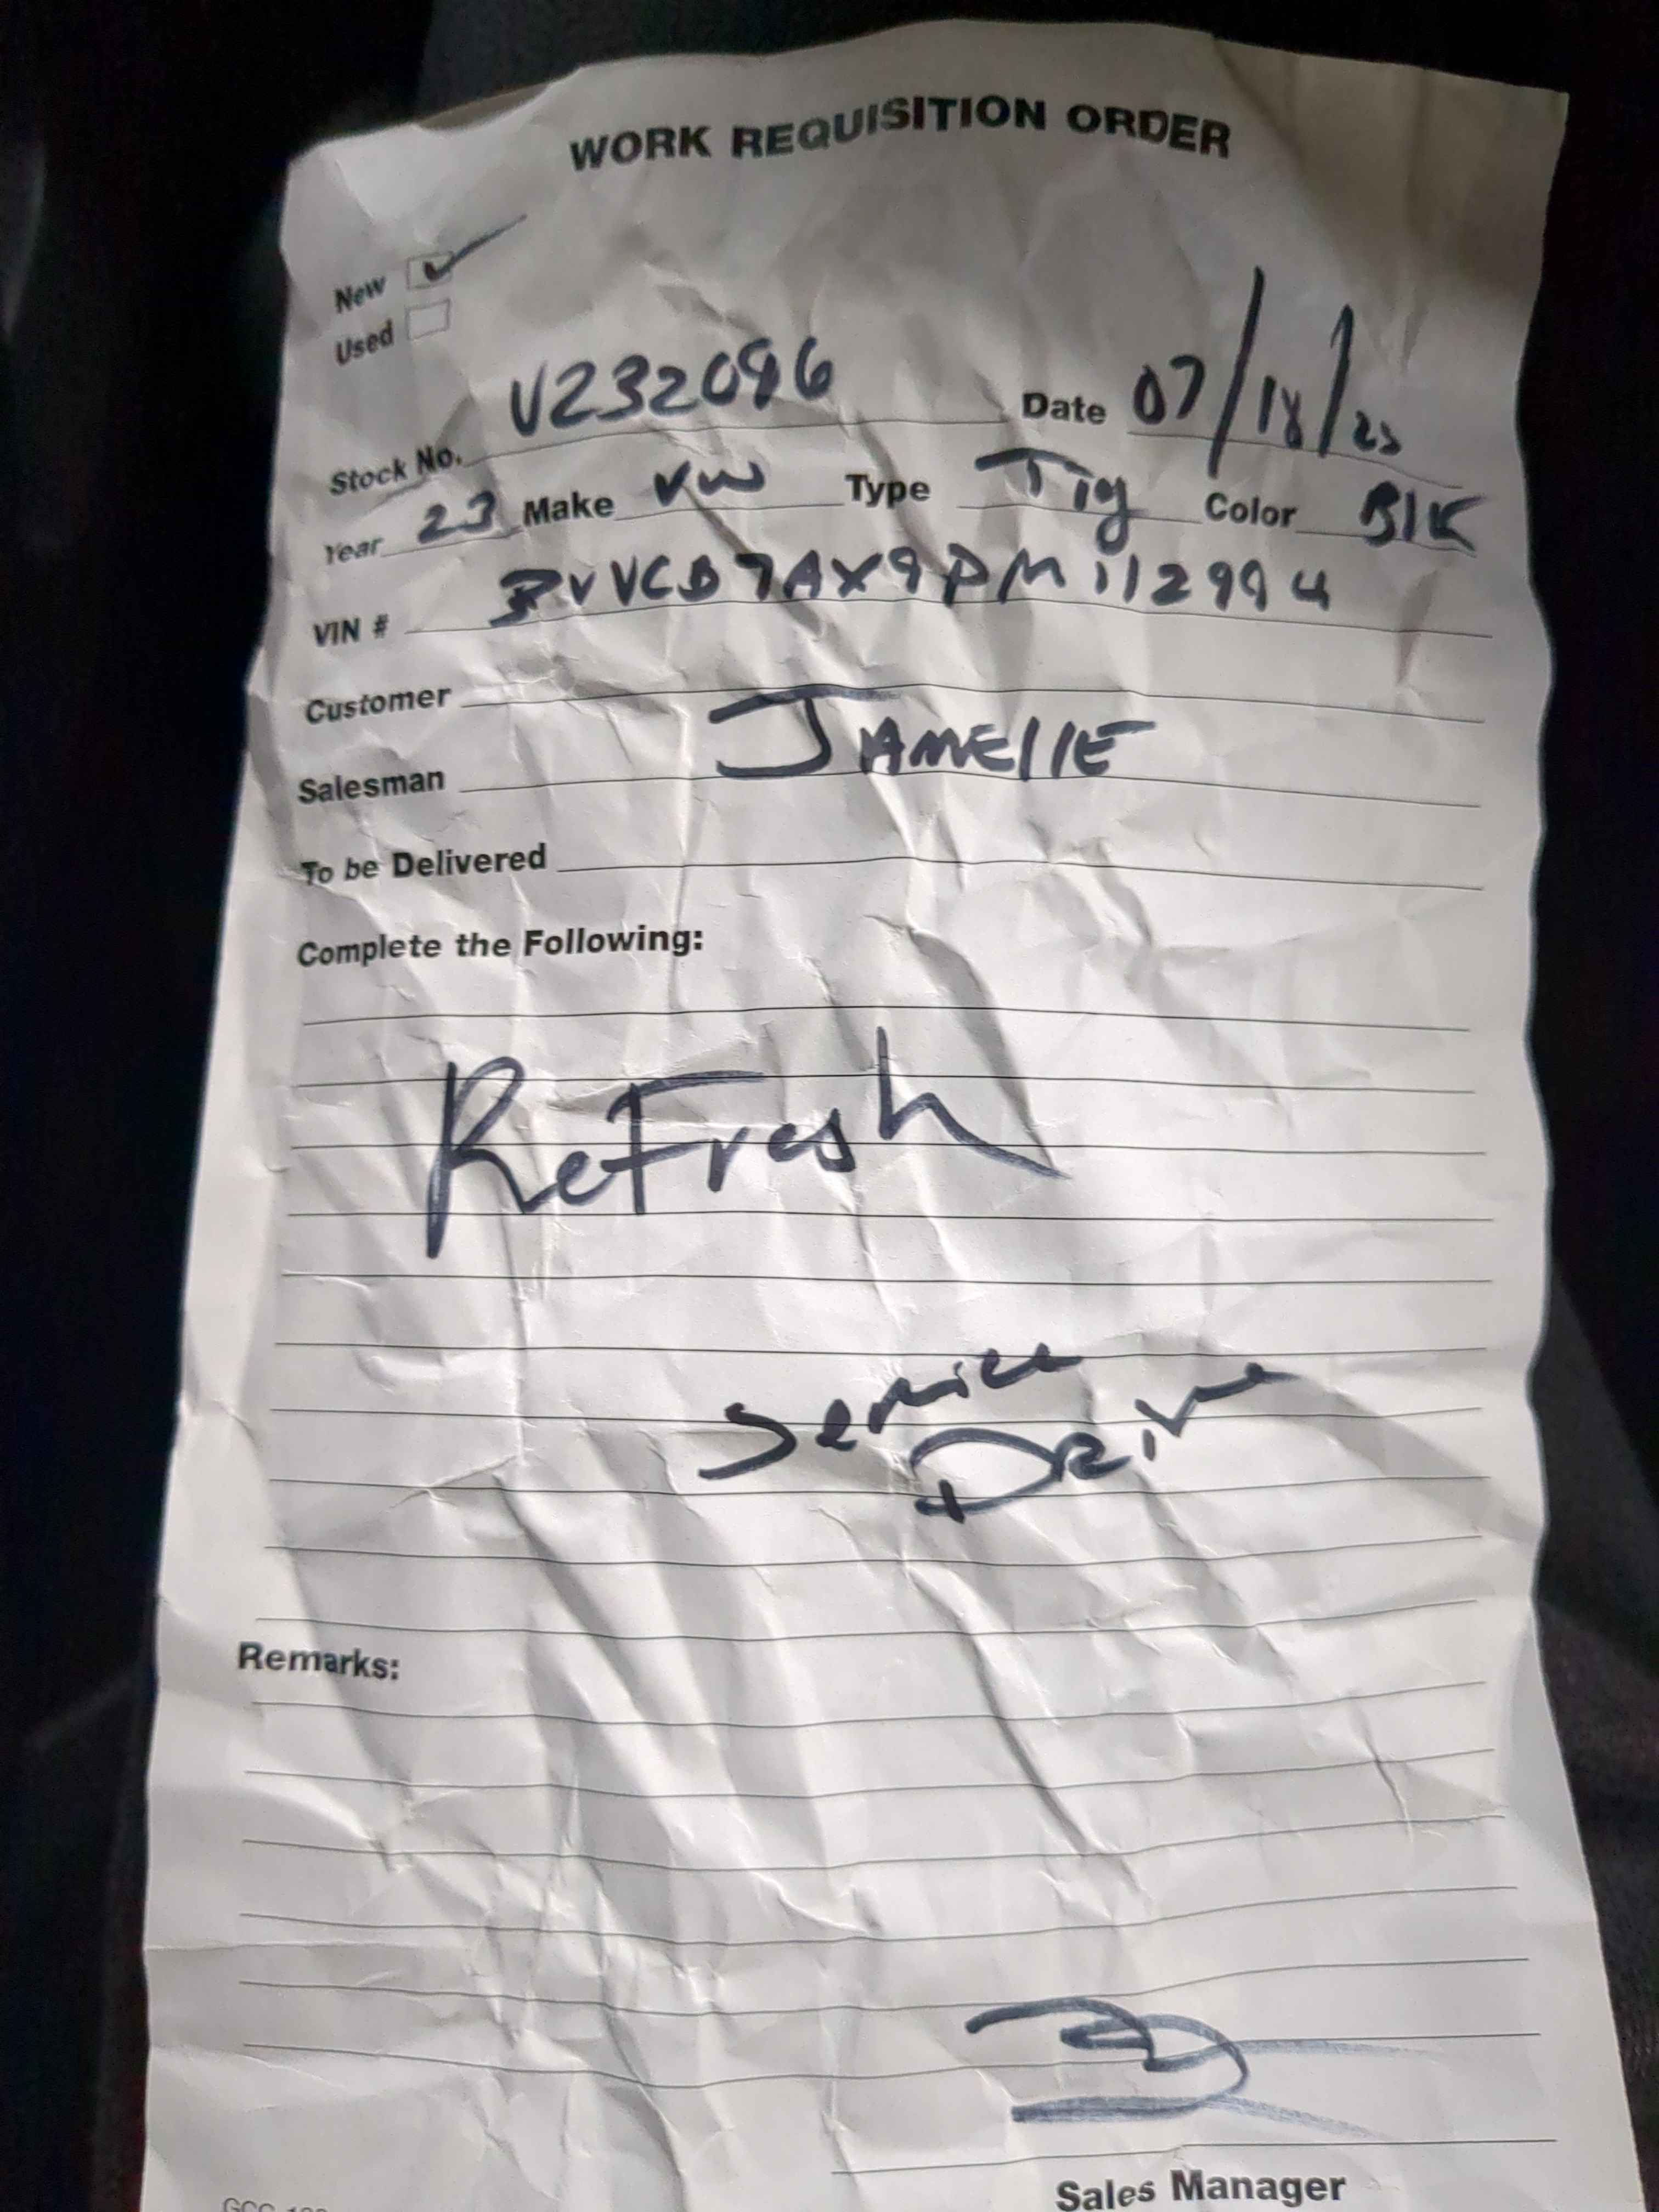 WORK REQUISITION ORDER
New ✓
Used
Stock No. V232096 Date 07/18/23
Year 23 Make VW Type Tig Color Blk
VIN # 3VVCB7AX9PM112994
Customer
Salesman JAMEllE
To be Delivered
Complete the Following:
ReFresh
Service
DRive
Remarks:
Sales Manager